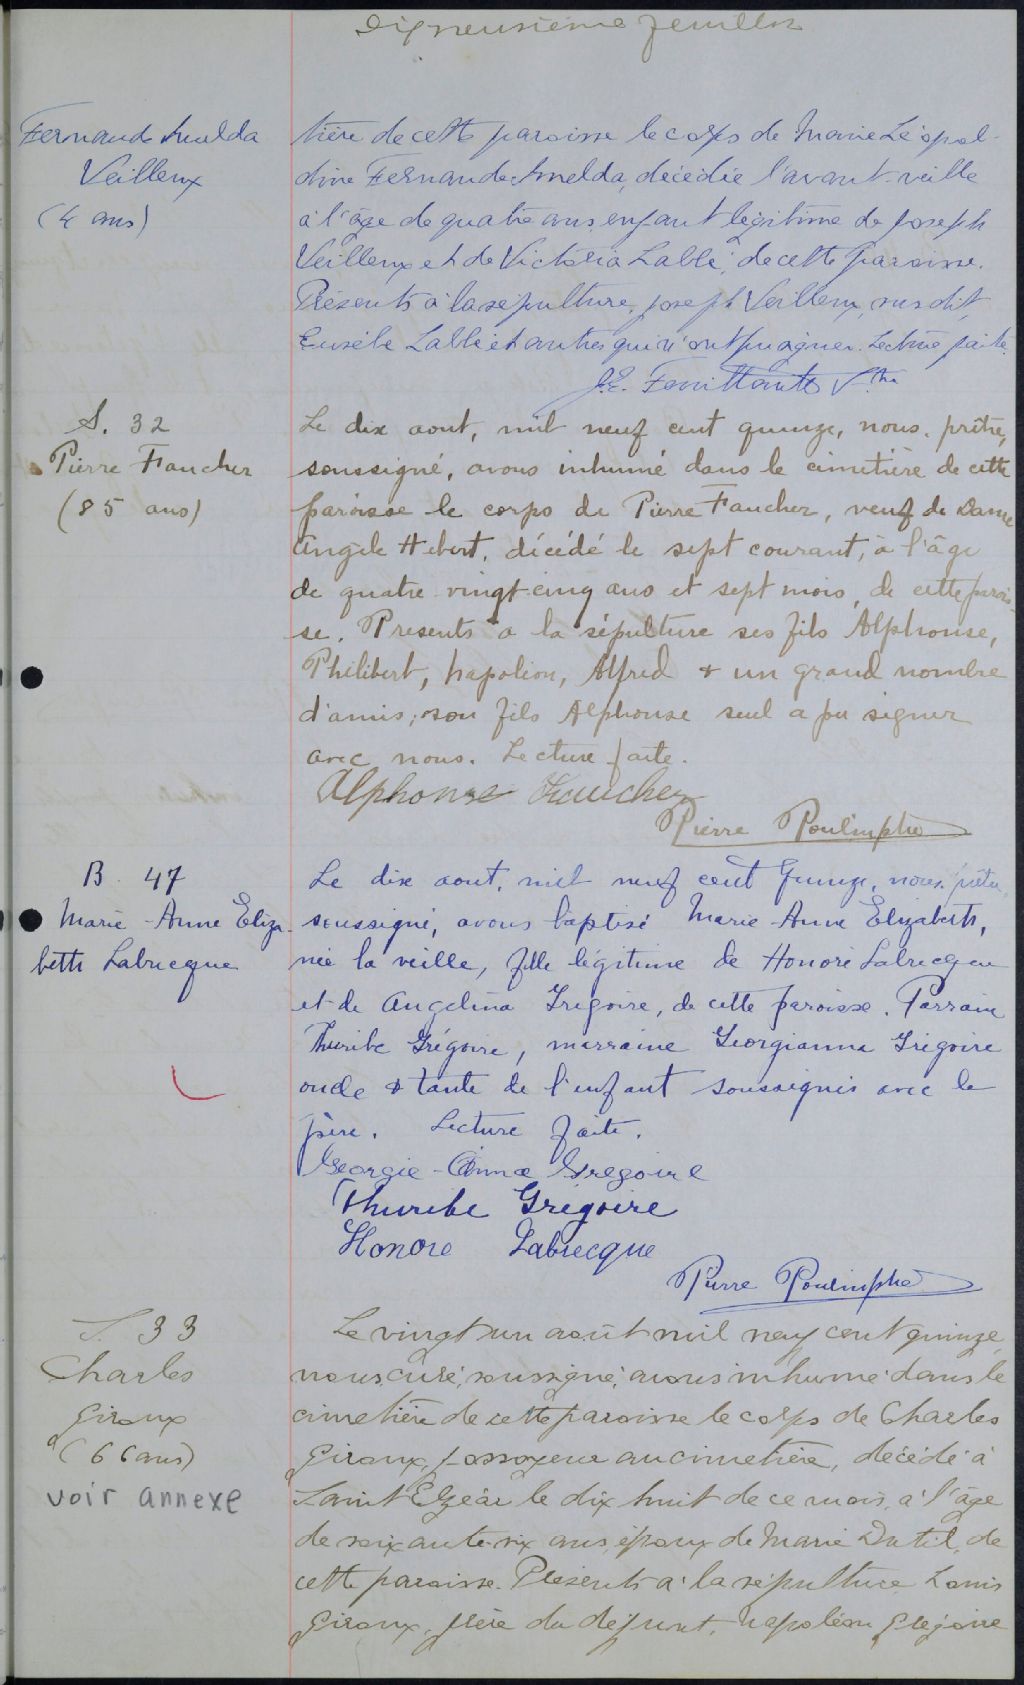 Dixneuvième feuillet
Fernande Imelda
Veilleux
(4 ans)
tière de cette paroisse le corps de Marie Léopol-
dine Fernande Imelda, décédée l'avant-veille
à l'âge de quatre ans, enfant légitime de Joseph
Veilleux et de Victoria Labbé, de cette paroisse.
Présents à la sépulture, Joseph Veilleux, susdit,
Eusèbe Labbé et autres qui n'ont pu signer. Lecture faite.
J.E. Feuiltault Ptre
S. 32
Pierre Faucher
(85 ans)
Le dix aout, mil neuf cent quinze, nous, prêtre,
soussigné, avons inhumé dans le cimetière de cette
paroisse le corps de Pierre Faucher, veuf de Dame
Angèle Hebert, décédé le sept courant, à l'âge
de quatre vingt-cinq ans et sept mois, de cette parois-
se. Presents à la sépulture ses fils Alphonse,
Philibert, Napoléon, Alfred & un grand nombre
d'amis; son fils Alphonse seul a pu signer
avec nous. Lecture faite.
Alphonse Faucher
Pierre Poulin ptre
B. 47
Marie-Anne Eliza-
beth Labrecque
Le dix aout, mil neuf cent Quinze, nous, prêtre
soussigné, avons baptisé Marie-Anne Elizabeth,
née la veille, fille légitime de Honoré Labrecque
et de Angelina Grégoire, de cette paroisse. Parrain
Thuribe Grégoire, marraine Georgianna Grégoire
oncle & tante de l'enfant soussignés avec le
père. Lecture faite.
Georgie-Anna Gregoire
Thuribe Grégoire
Honore Labrecque
Pierre Poulin ptre
S. 33
Charles
Giroux
(66 ans)
voir annexe
Le vingt un août mil neuf cent quinze
nous, curé, soussigné, avons inhumé dans le
cimetière de cette paroisse le corps de Charles
Giroux, fossoyeur au cimetière, décédé à
Saint Elzéar le dix huit de ce mois, à l'âge
de soixante-six ans, époux de Marie Dutil, de
cette paroisse. Présents à la sépulture, Louis
Giroux, frère du défunt, Napoléon Grégoire